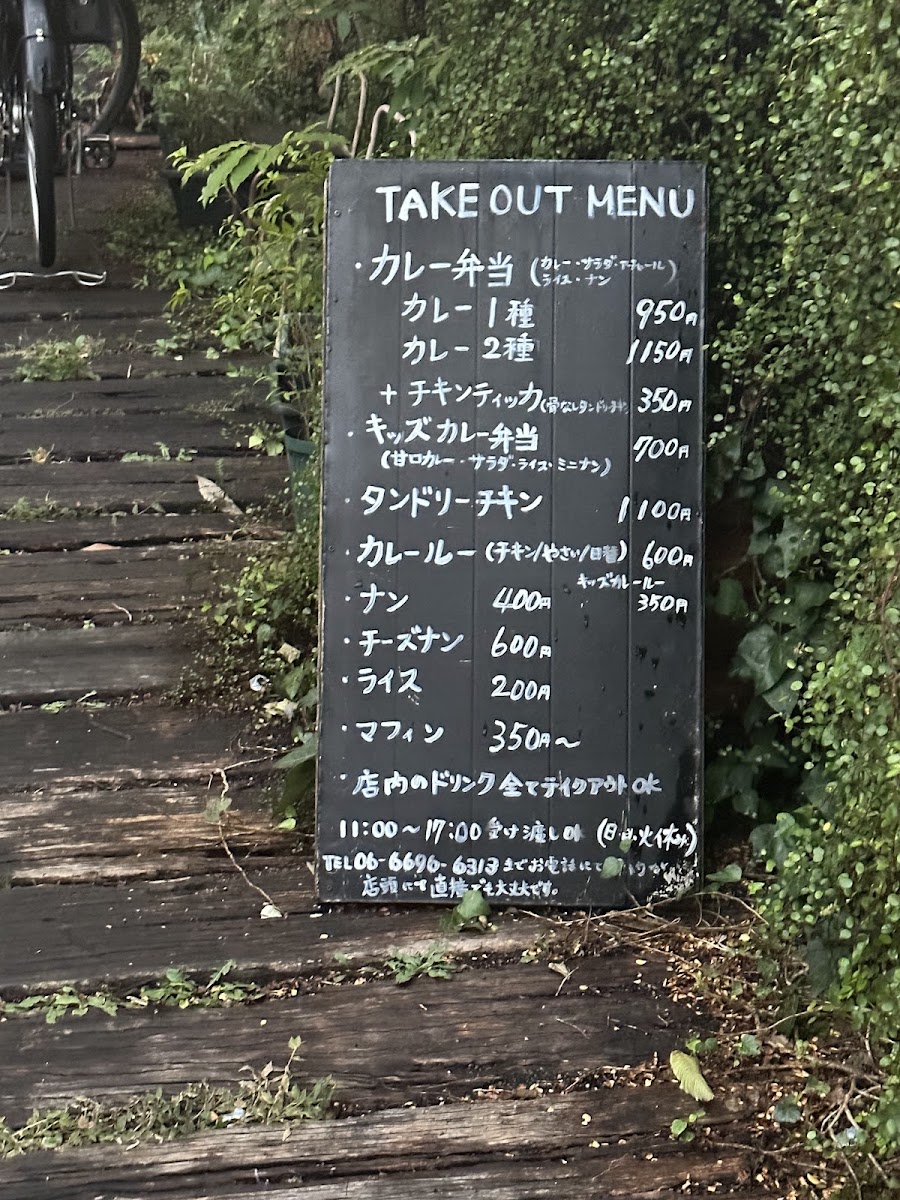 TAKE OUT MENU
・カレー弁当 (カレー・サラダ・アチャール
ライス・ナン)
カレー 1種 950円
カレー 2種 1150円
+ チキンティッカ(骨なしタンドリーチキン 350円
・キッズカレー弁当 700円
(甘口カレー・サラダ・ライス・ミニナン)
・タンドリーチキン 1100円
・カレールー (チキン/やさい/日替) 600円
キッズカレールー
・ナン 400円 350円
・チーズナン 600円
・ライス 200円
・マフィン 350円〜
・店内のドリンク全てテイクアウトOK
11:00〜17:00 受け渡しOK (日・月・火休み)
TEL 06-6696-6313 までお電話にて
店頭にて直接でも大丈夫です。